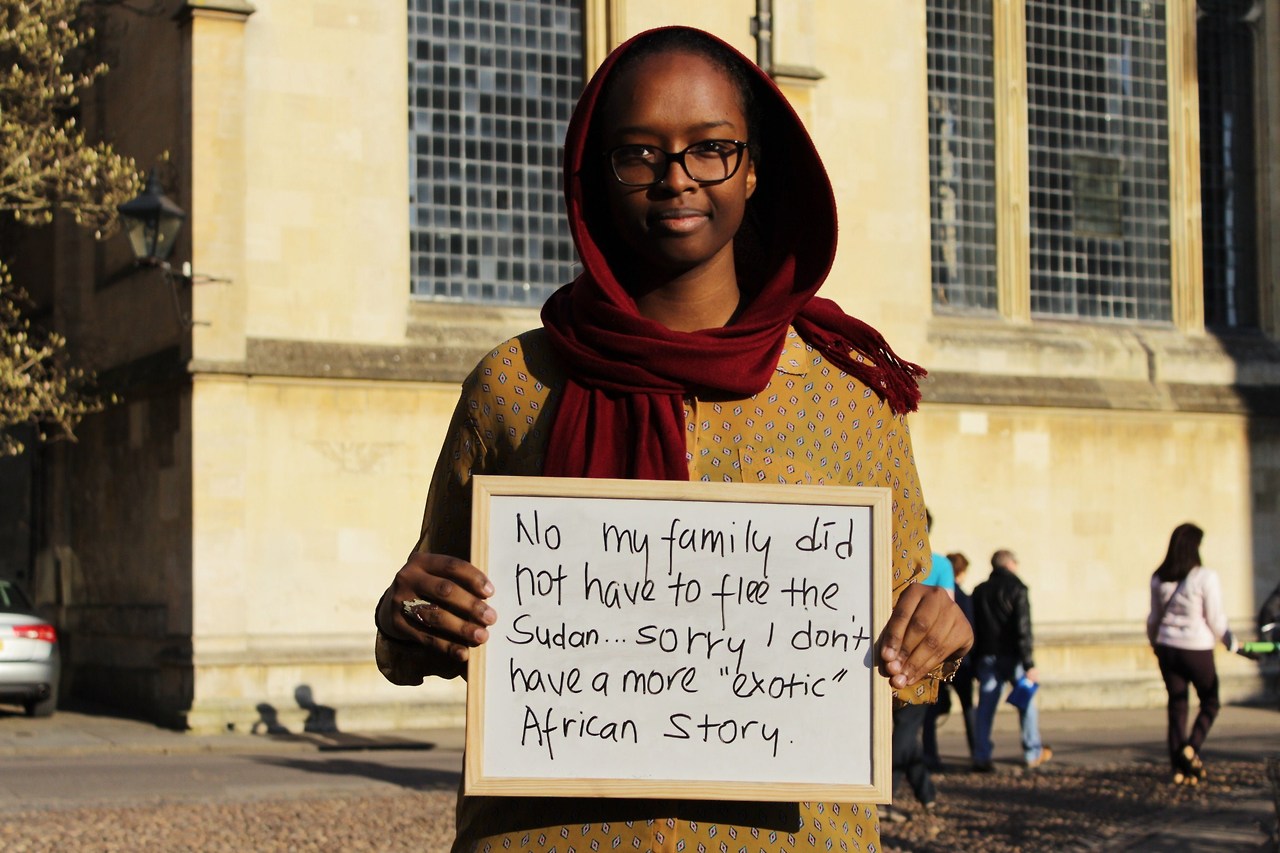 No my family did
not have to flee the
Sudan... sorry I don't
have a more "exotic"
African story.